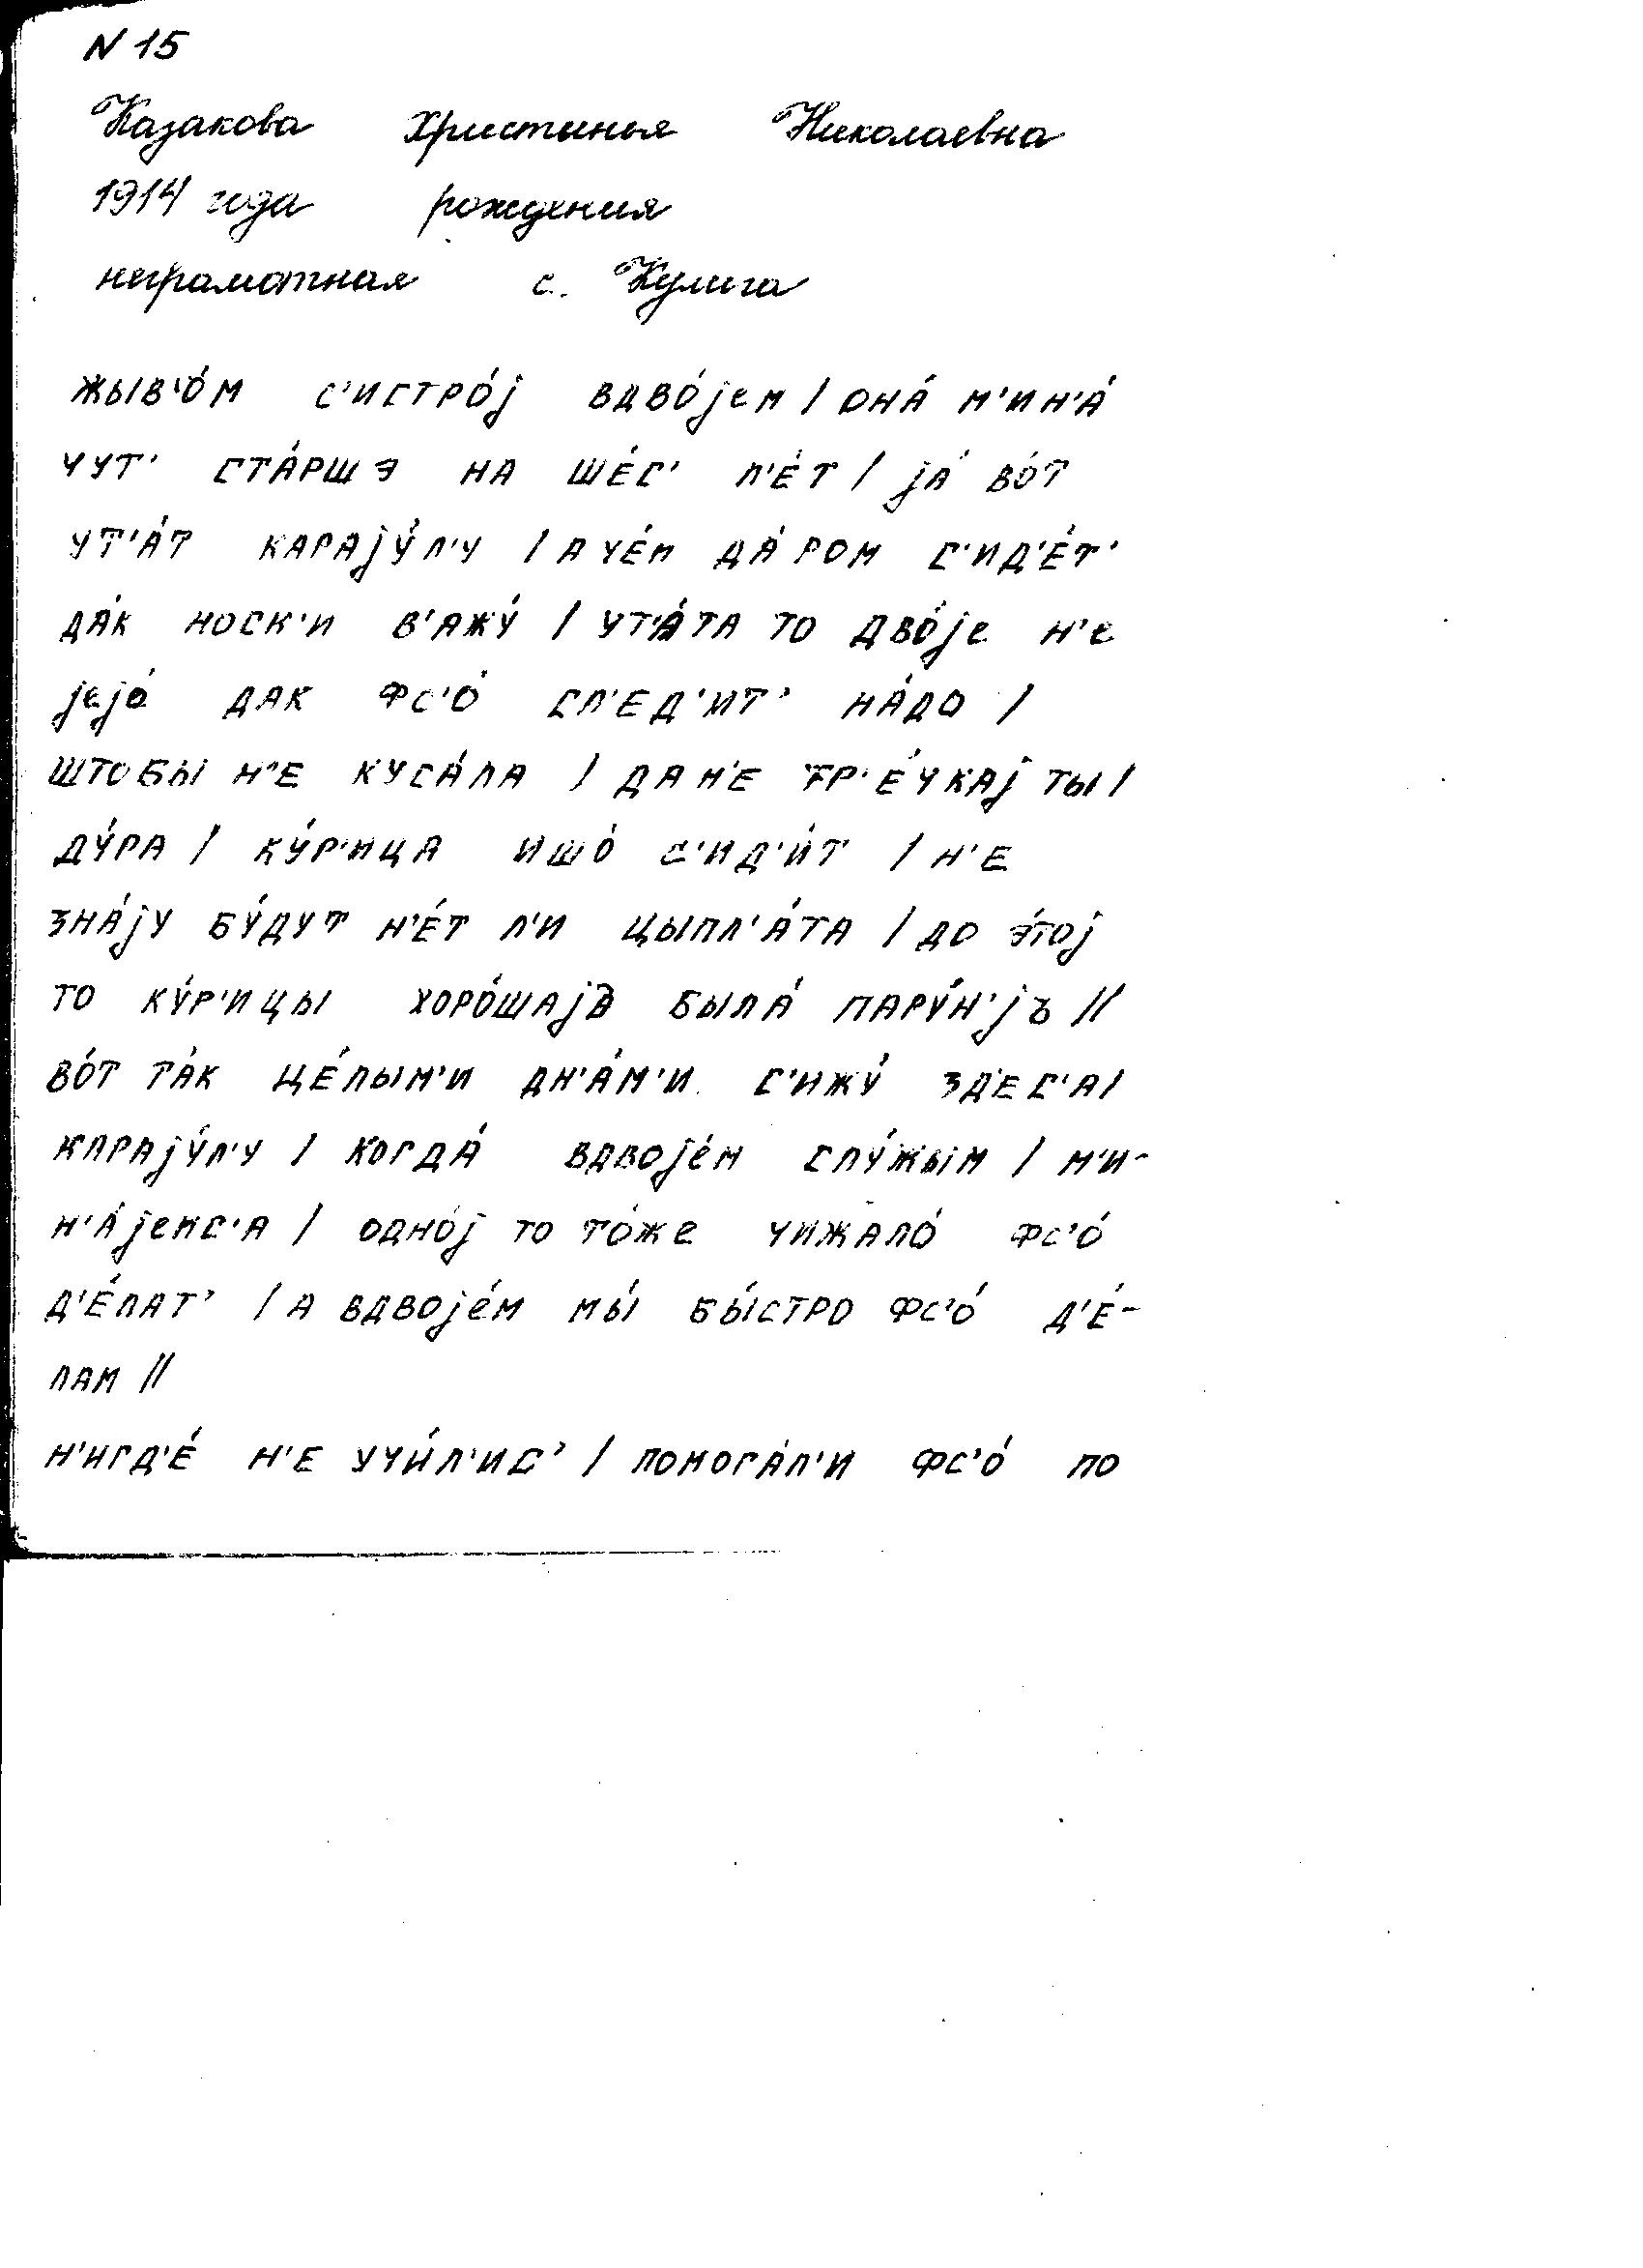 N 15
Казакова Христинья Николаевна
1914 года рождения
неграмотная с. Кулига
жыв'о́м с'истро́j вдво́jем / она́ м'ин'а́
чут' ста́ршэ на ше́с' л'е́т / jа́ во́т
ут'а́т караjу́л'у / а че́м да́ром с'ид'е́т'
да́к носк'и в'ажу́ / ут'а́та то дво́jе н'е
jеjо́ дак фс'о́ сл'ед'ит' на́до /
штобы н'е куса́ла / да н'е тр'е́чкаj ты /
ду́ра / ку́р'ица ишо́ с'ид'и́т / н'е
зна́jу бу́дут н'е́т л'и цыпл'а́та / до э́тоj
то ку́р'ицы хоро́шаjъ была́ пару́н'jъ //
во́т та́к це́лым'и дн'а́м'и с'ижу́ зд'ес'а /
караjу́л'у / когда́ вдвоjе́м слу́жым / м'и-
н'а́jемс'а / одно́j то то́же чижало́ фс'о́
д'е́лат' / а вдвоjе́м мы́ бы́стро фс'о́ д'е́-
лам //
н'игд'е́ н'е учи́л'ис' / помога́л'и фс'о́ по